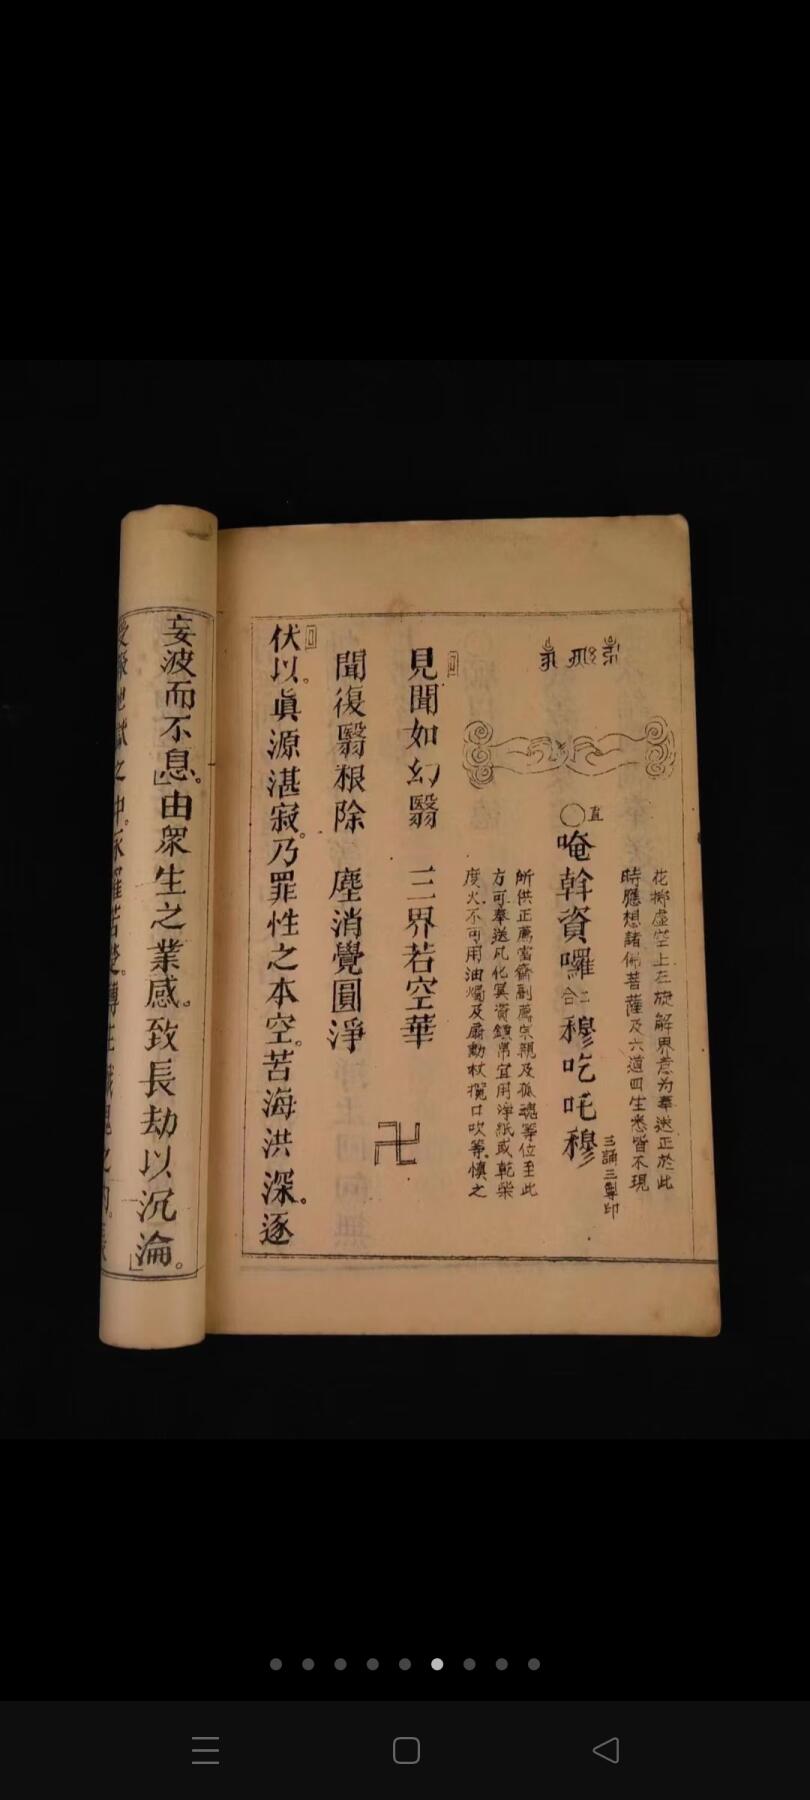 花擲虛空上在旋解界意为奉送正於此
時應想諸佛菩薩及六道四生悉皆不現
三誦三掣印
直
唵斡資囉二合穆吃叱穆
所供正薦當齋副薦宗親及孤魂等位至此
方可奉送凡化冥資鏹帛宜用淨紙或乾柴
度火不可用油燭及扇動杖攪口吹等慎之
見聞如幻翳 三界若空華
聞復翳根除 塵消覺圓淨
卍
伏以。眞源湛寂。乃罪性之本空。苦海洪深。逐
妄波而不息。由衆生之業感。致長劫以沉淪。
之中。